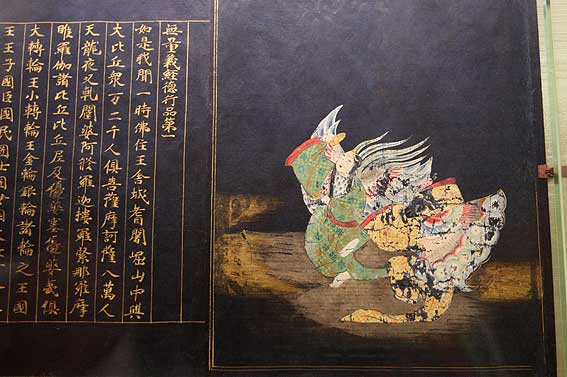 無量義經德行品第一
如是我聞一時佛住王舍城耆闍崛山中與
大比丘衆万二千人俱菩薩摩訶薩八萬人
天龍夜叉乹闥婆阿脩羅迦樓羅緊那羅摩
睺羅伽諸比丘比丘尼及優婆塞優婆夷俱
大轉輪王小轉輪王金輪銀輪諸輪之王國
王王子國臣國民國士國女國